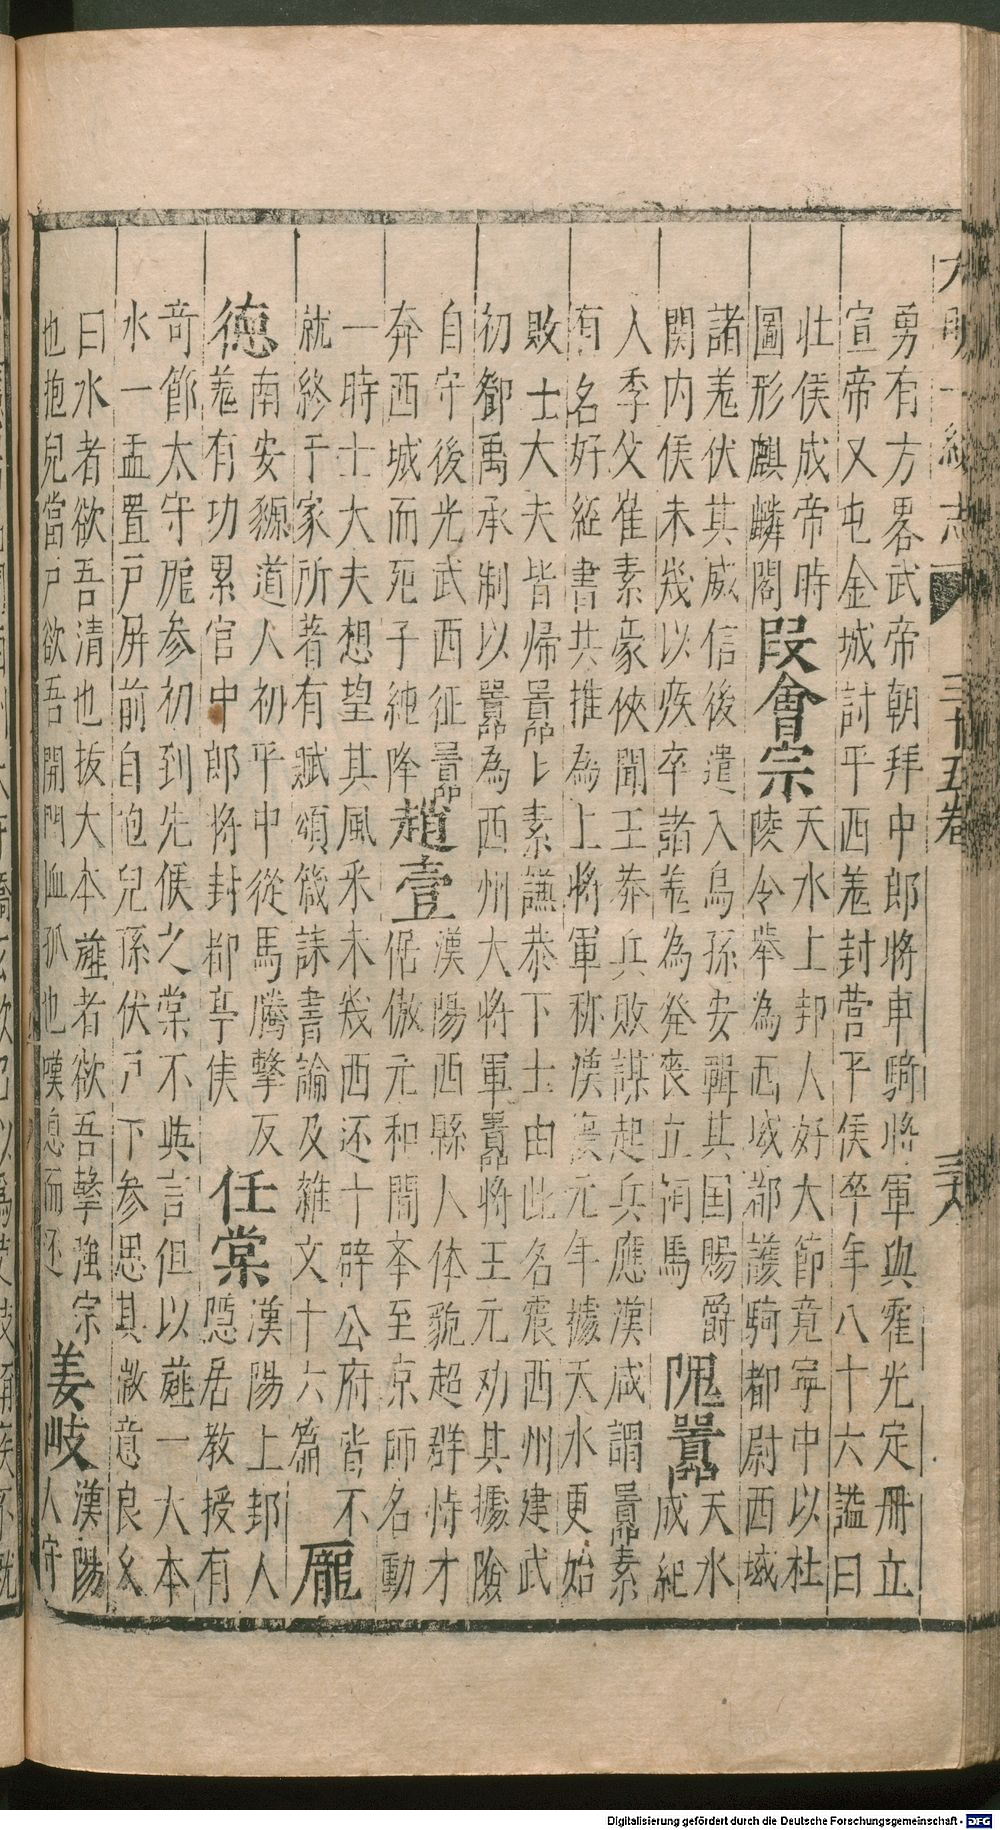 大明一統志 三十五卷 三十八
勇有方畧武帝朝拜中郎將車騎將軍與霍光定冊立
宣帝又屯金城討平西羗封營平侯卒年八十六謚曰
壯侯成帝時
段會宗
天水上邽人好大節竟寧中以杜
陵令舉為西域都護騎都尉西域
圖形麒麟閣
諸羗伏其威信後遣入烏孫安輯其国賜爵
関内侯未幾以疾卒諸羗為発喪立祠焉
隗囂
天水
成紀
人季父崔素豪俠聞王莽兵敗謀起兵應漢咸謂囂素
有名好經書共推為上將軍称漢復元年據天水更始
敗士大夫皆帰囂囂素謙恭下士由此名震西州建武
初鄧禹承制以囂為西州大將軍囂將王元劝其據險
自守後光武西征囂
奔西城而死子純降
趙壹
漢陽西縣人体貌超群恃才
倨傲元和間奉至京師名動
一時士大夫想望其風采未幾西还十辟公府皆不
就終于家所著有賦頌箴誄書論及雜文十六篇
龎
德
南安獂道人初平中從馬騰擊反
羗有功累官中郎將封都亭侯
任棠
漢陽上邽人
隠居教授有
竒節太守龎参初到先候之棠不與言但以薤一大本
水一盂置戸屏前自抱兒孫伏戸下参思其微意良久
曰水者欲吾清也抜大本薤者欲吾擊強宗
也抱兒當戸欲吾開門恤孤也嘆息而还
姜岐
漢陽
人守
Digitalisierung gefördert durch die Deutsche Forschungsgemeinschaft - DFG